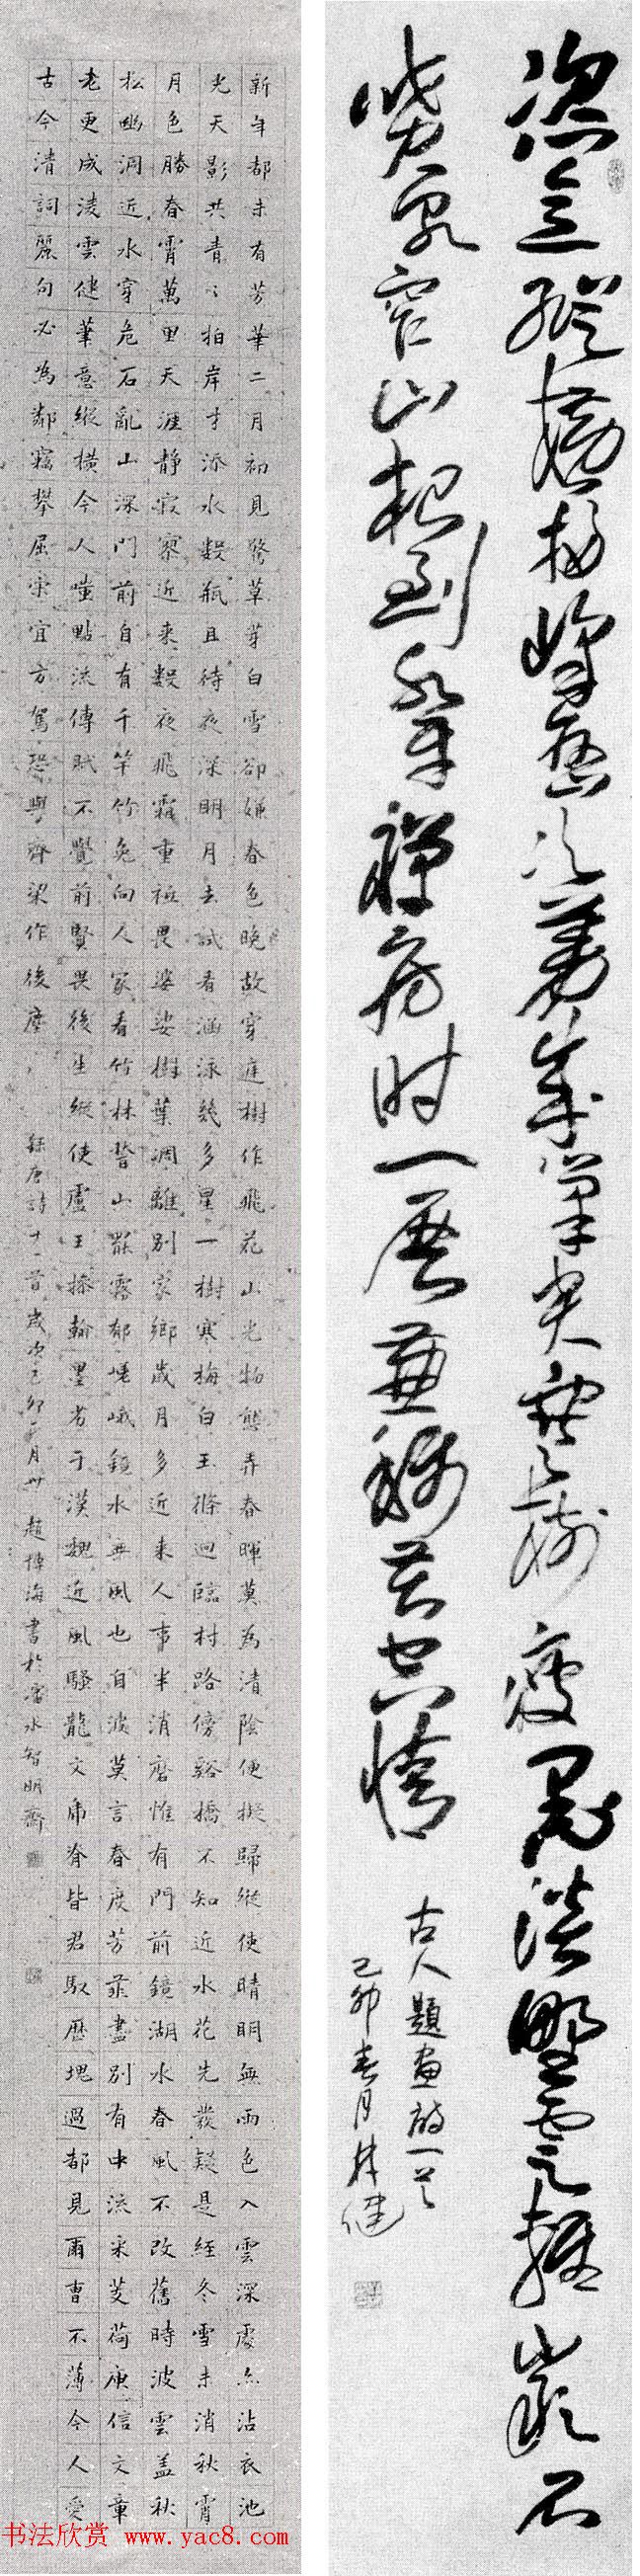 恣意縱橫掃峰巒次第成筆尖寒樹瘦墨淡野雲輕巖石
噴泉窄山根到水平禪房時一展兼稱苦空情
古人題畫詩一首
己卯春月林健
新年都未有芳華二月初見驚草芽白雪卻嫌春色晚故穿庭樹作飛花山光物態弄春暉莫為清陰便擬歸縱使晴明無雨色入雲深處亦沾衣池
光天影共青〻拍岸才添水數瓶且待夜深明月去試看涵泳幾多星一樹寒梅白玉條迴臨村路傍谿橋不知近水花先發疑是經冬雪未消秋霄
月色勝春霄萬里天涯靜寂寥近來數夜飛霜重祗畏婆娑樹葉凋離別家鄉歲月多近來人事半消磨惟有門前鏡湖水春風不改舊時波雲蓋秋
松幽洞近水穿危石亂山深門前自有千竿竹免向人家看竹林山罷霧郁嵯峨鏡水無風也自波莫言春度芳菲盡別有中流采芰荷庾信文章
老更成淩雲健筆意縱橫今人嗤點流傳賦不覺前賢畏後生縱使盧王操翰墨劣于漢魏近風騷龍文虎脊皆君馭歷塊過都見爾曹不薄今人愛
古今清詞麗句必為鄰竊攀屈宋宜方駕恐與齊梁作後塵 錄唐詩十一首歲次己卯月卅趙博海書於水智明齋
书法欣赏 www.yac8.com